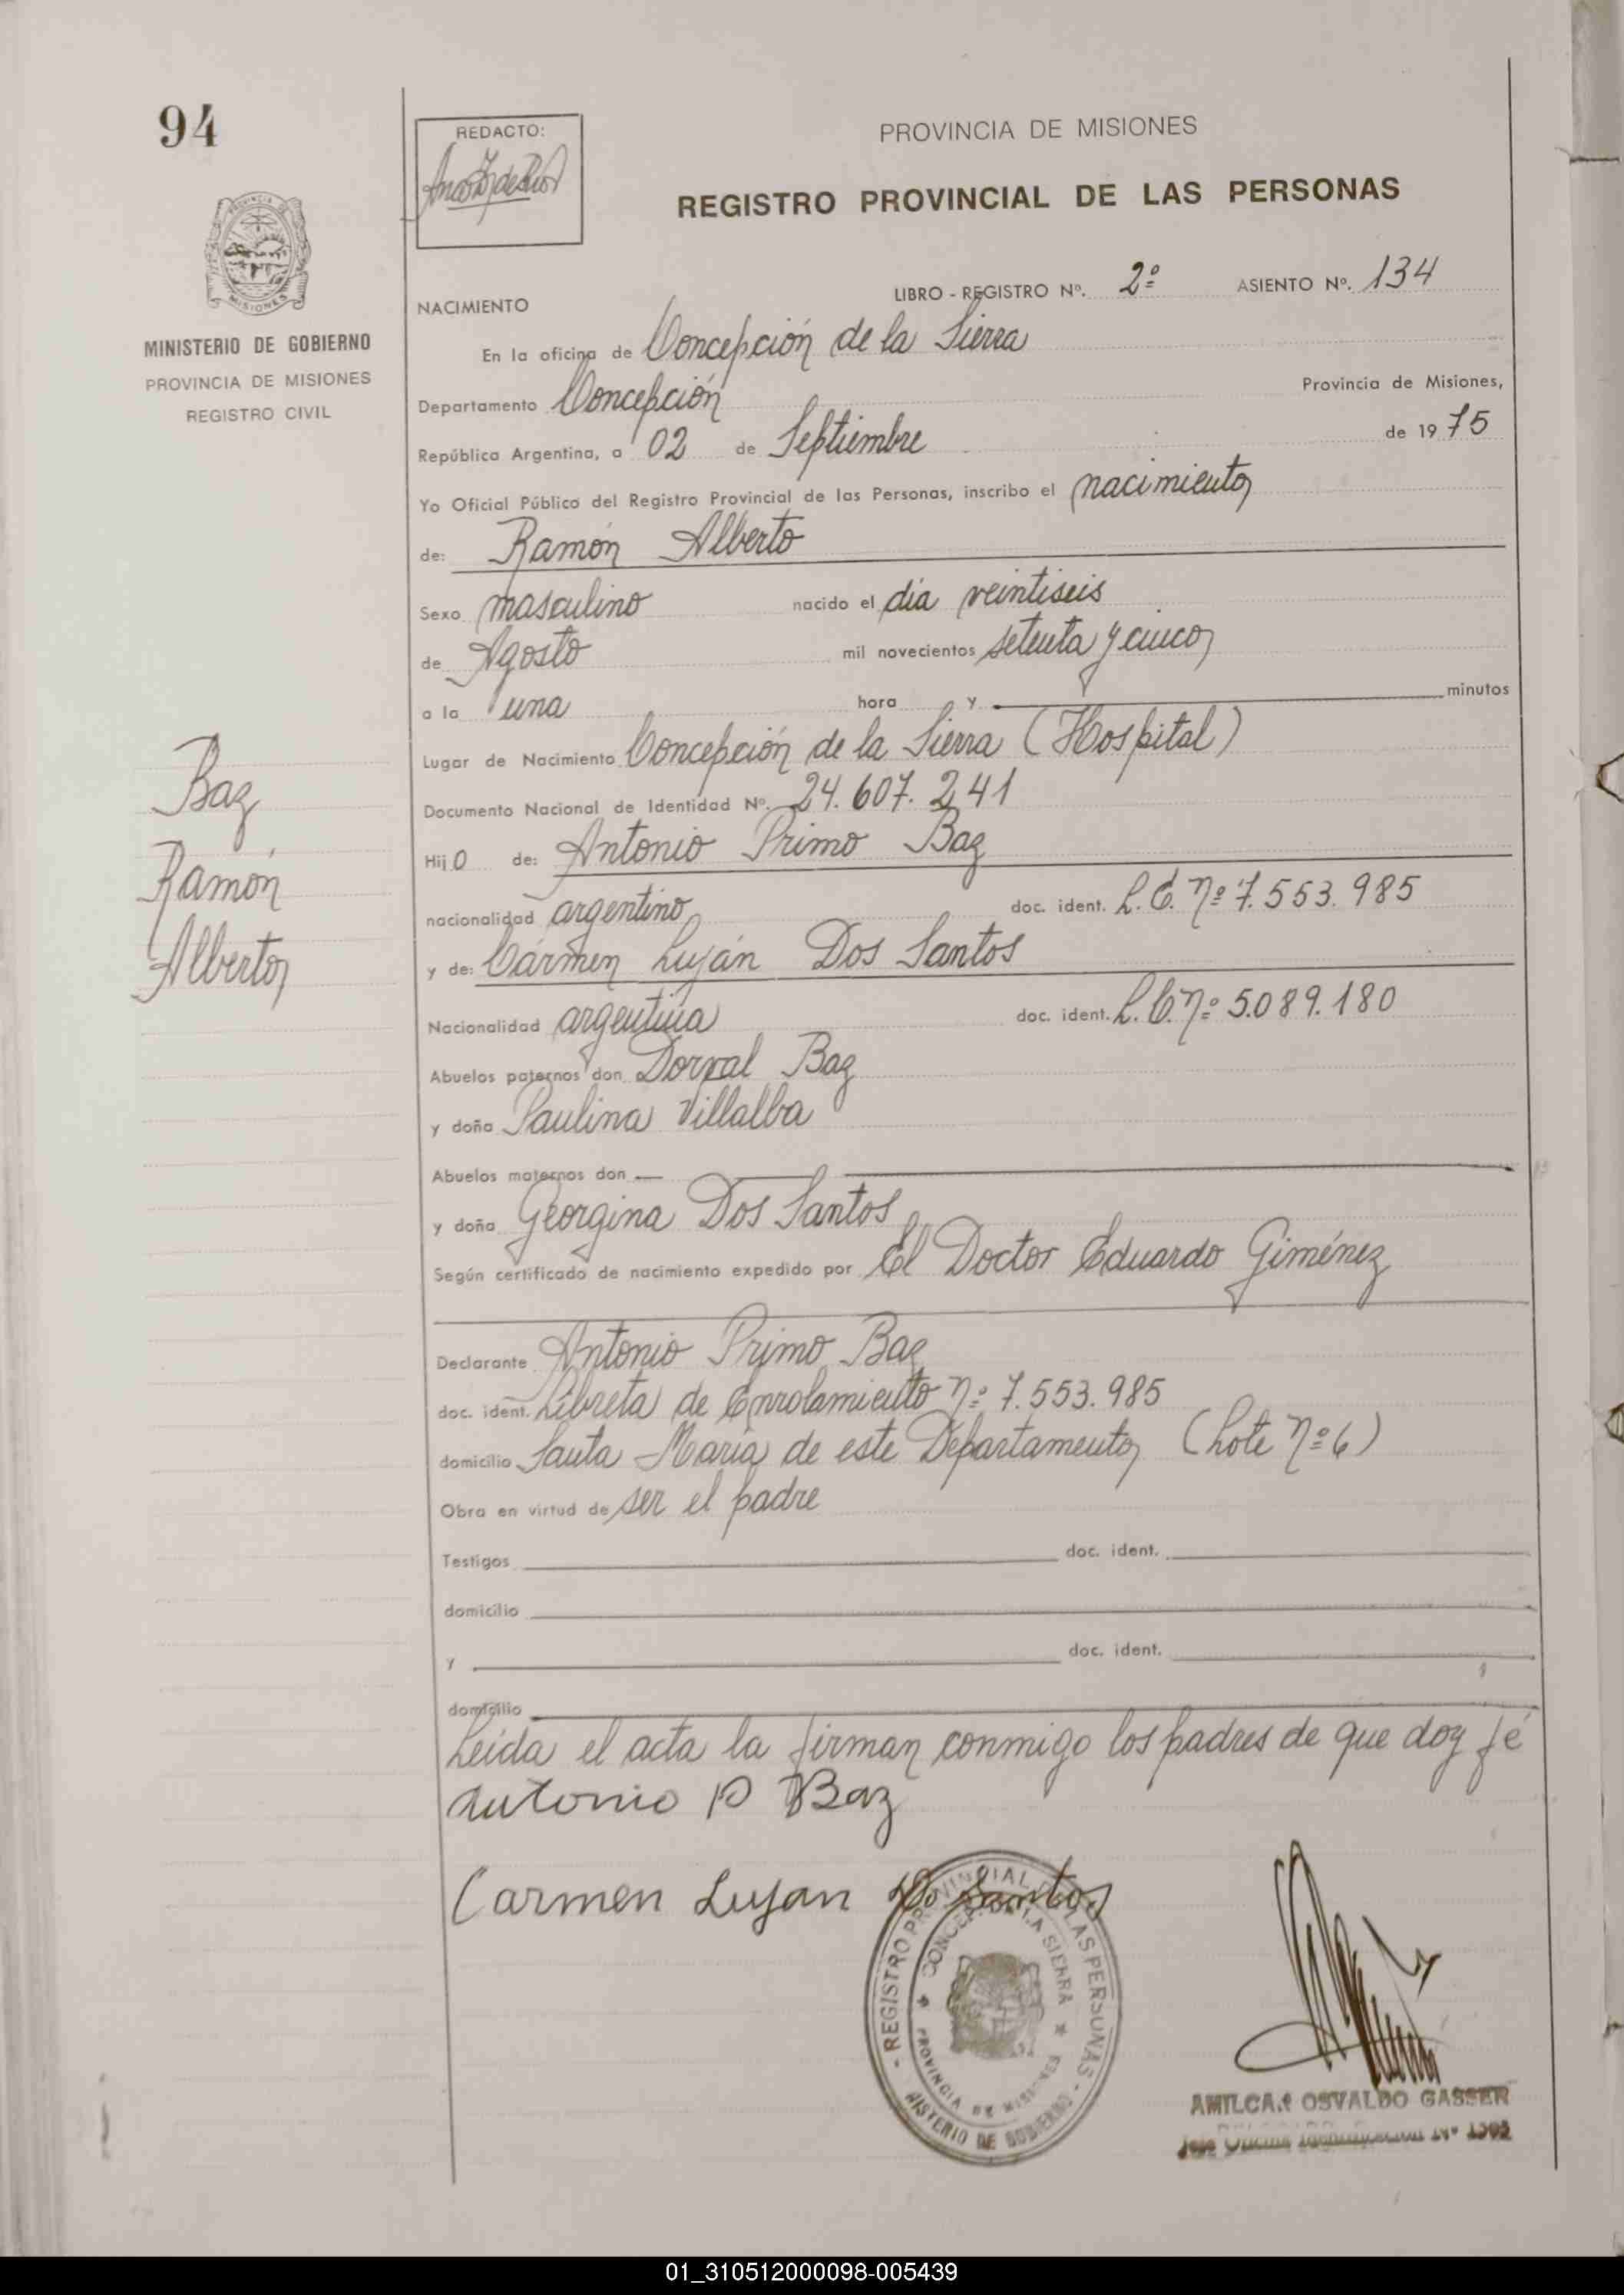 94
REDACTO:
PROVINCIA DE MISIONES
REGISTRO PROVINCIAL DE LAS PERSONAS
PROVINCIA DE
MISIONES
MINISTERIO DE GOBIERNO
PROVINCIA DE MISIONES
REGISTRO CIVIL
LIBRO - REGISTRO Nº. 2º ASIENTO Nº. 134
NACIMIENTO
En la oficina de Concepción de la Sierra
Departamento Concepción Provincia de Misiones,
República Argentina, a 02 de Septiembre de 1975
Yo Oficial Público del Registro Provincial de las Personas, inscribo el nacimiento
de: Ramón Alberto
Sexo masculino nacido el día veintiseis
de Agosto mil novecientos setenta y cinco
a la una hora y minutos
Lugar de Nacimiento Concepción de la Sierra (Hospital)
Documento Nacional de Identidad Nº. 24.607.241
Hijo de: Antonio Primo Baz
nacionalidad argentino doc. ident. L.E. nº 7.553.985
y de: Cármen Luján Dos Santos
Nacionalidad argentina doc. ident. L.C. nº 5.089.180
Abuelos paternos don Dorval Baz
y doña Paulina Villalba
Abuelos maternos don
y doña Georgina Dos Santos
Según certificado de nacimiento expedido por El Doctor Eduardo Giménez
Declarante Antonio Primo Baz
doc. ident. Libreta de Enrolamiento nº 7.553.985
domicilio Santa María de este Departamento (Lote nº 6)
Obra en virtud de ser el padre
Testigos doc. ident.
domicilio
y doc. ident.
domicilio
Leída el acta la firman conmigo los padres de que doy fé
Antonio P Baz
Carmen Lujan Do Santos
Baz
Ramón
Alberto
REGISTRO PROVINCIAL DE LAS PERSONAS
CONCEP. DE LA SIERRA
PROVINCIA DE MISIONES
MINISTERIO DE GOBIERNO
AMILCAR OSVALDO GASSER
01_310512000098-005439